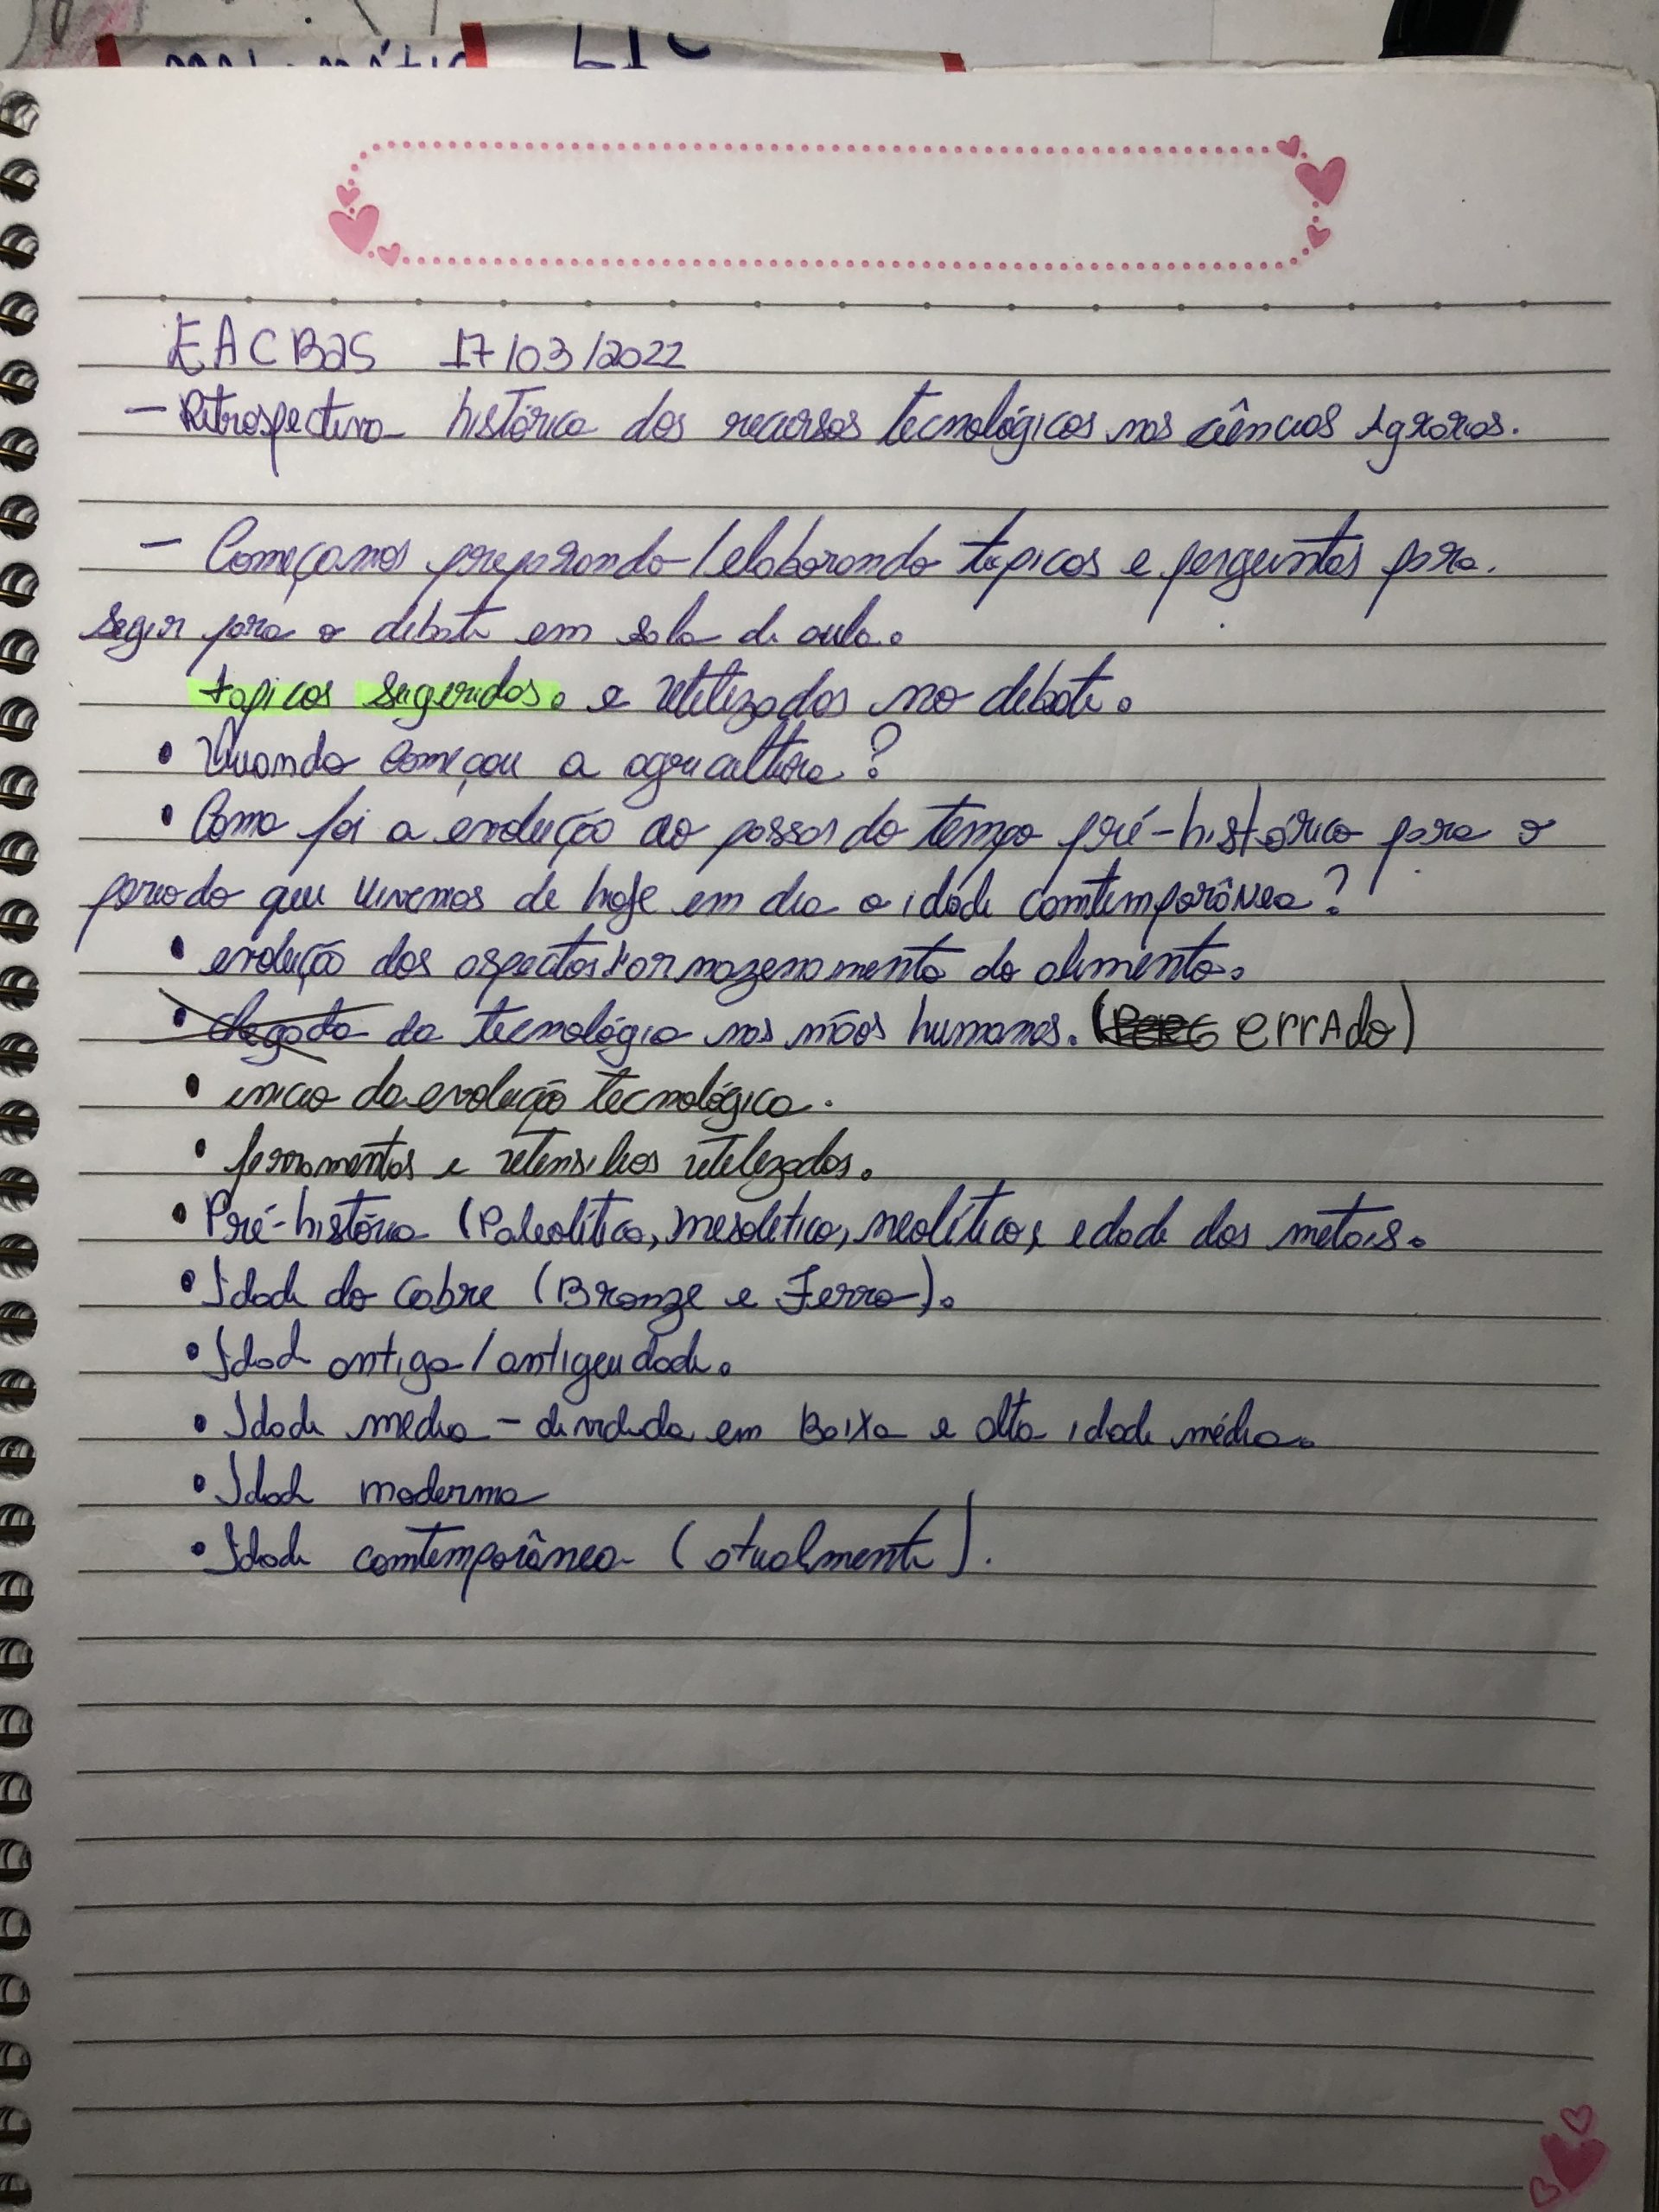 EACBas 17/03/2022
- Retrospectiva histórica dos recursos tecnológicos nas ciências Agrárias.
- Começamos preparando/elaborando topicos e perguntas para.
segir para o debate em sala de aula.
topicos sugeridos. e utilizados no debate.
• Quando começou a agricultura?
• Como foi a evolução ao passar do tempo pré-histórico para o
periodo que vivemos de hoje em dia a idade contemporânea?
• evolução dos aspectos armazenamento do alimento.
• chegada da tecnológia nas mãos humanas. (errAdo)
• inicio da evolução tecnológica.
• ferramentas e utensilios utilizados.
• Pré-história (Paleolítico, mesolitico, neolítico, e dade dos metais.
• Idade do cobre (Bronze e Ferro).
• Idade antiga/antiguidade.
• Idade media - dividida em Baixa e alta idade média.
• Idade moderna
• Idade contemporânea (atualmente).